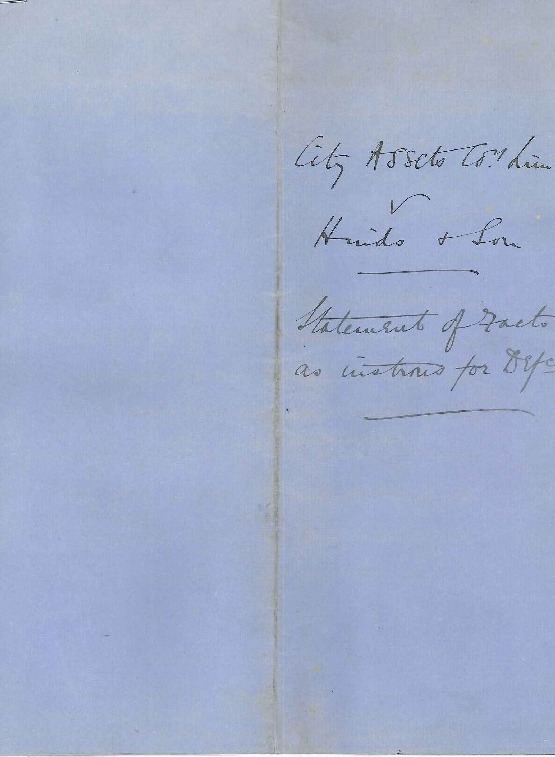 City Assets Coy Lim
v
Hinds & Son
Statement of Facts
as instrons for Defce